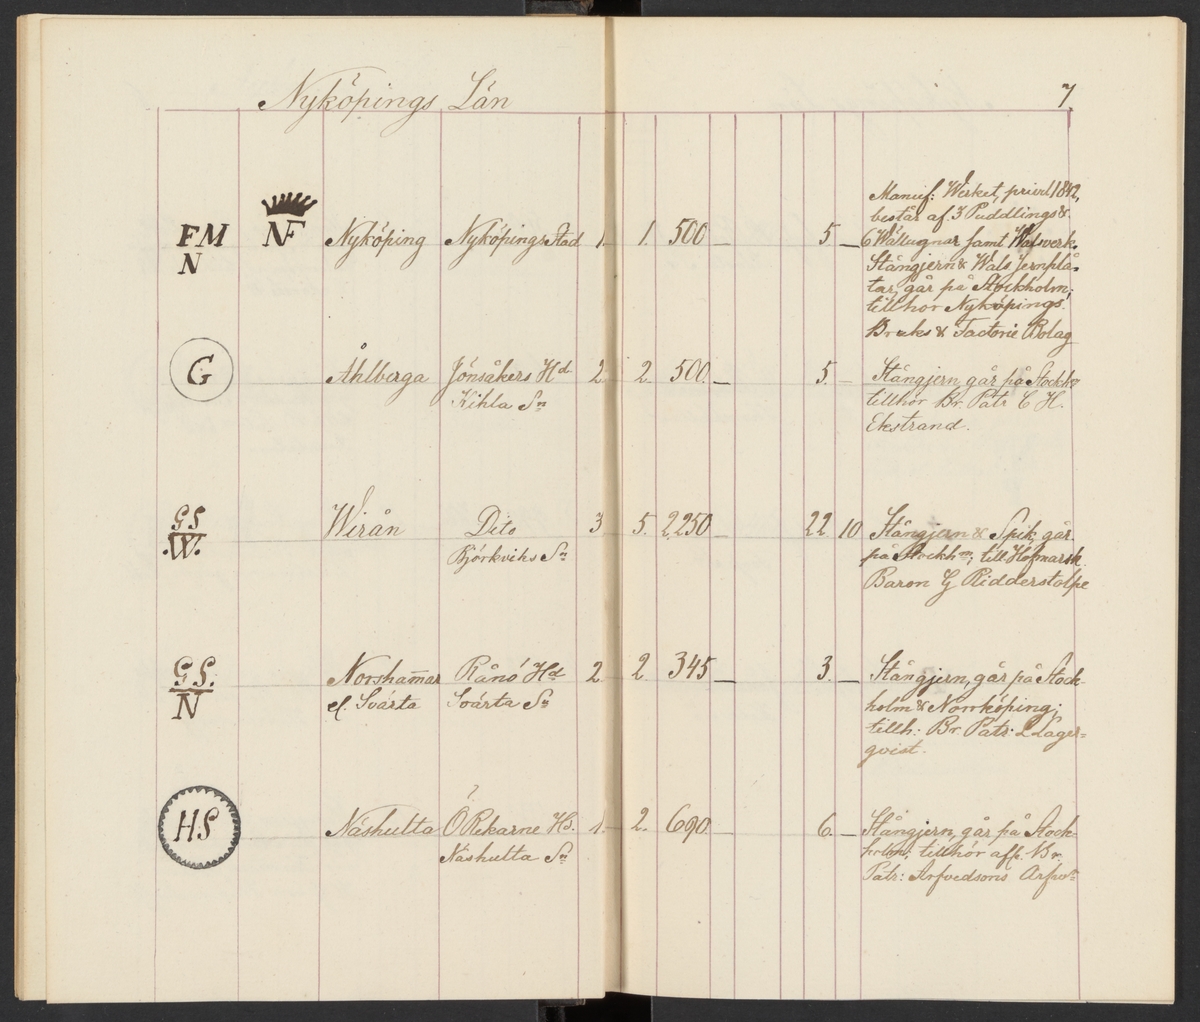 Nyköpings Län
7
FM
N
NF
Nyköping Nyköpings Stad 1. 1. 500 — 5 —
Manuf: Werket, privil 1842,
består af 3 Puddlings &
6 Wällugnar samt Walsverk.
Stångjern & Wals Jernplå-
tar, går på Stockholm;
tillhör Nyköpings
Bruks & Factorie Bolag
G
Åhlberga Jönsåkers Hd 2 2. 500. — 5. —
Kihla Sn
Stångjern går på Stockhm
tillhör Br. Patr C H.
Ekstrand.
GS
.W.
Wirån Dito 3 5. 2,250 — 22. 10
Björkviks Sn
Stångjern & Spik, går
på Stockhm; till. Hofmarsk.
Baron G Ridderstolpe
GS.
N
Norshamar Rånö Hd 2 2. 345 — 3. —
el. Svärta Svärta Sn
Stångjern, går på Stock-
holm & Norrköping;
tillh: Br. Patr: L Lager-
qvist.
HS
Näshulta Ö Rekarne Hd. 1. 2. 690 — 6. —
Näshulta Sn
Stångjern, går på Stock-
holm; tillhör afl. Br.
Patr: Arfvedsons Arfvr